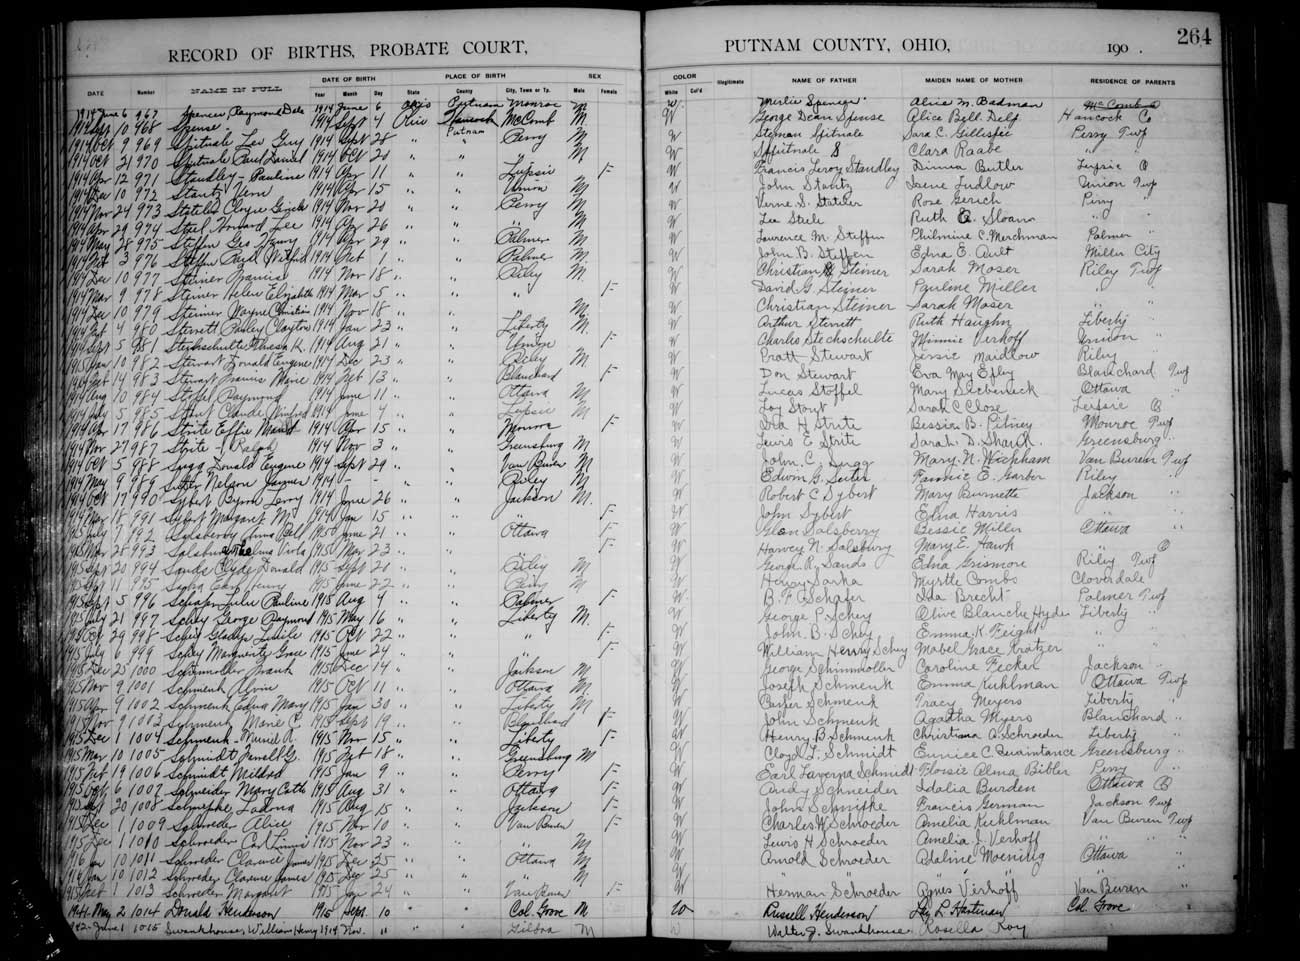 264
RECORD OF BIRTHS, PROBATE COURT, PUTNAM COUNTY, OHIO, 190 .
DATE Number NAME IN FULL DATE OF BIRTH PLACE OF BIRTH SEX COLOR Illegitimate NAME OF FATHER MAIDEN NAME OF MOTHER RESIDENCE OF PARENTS
Year Month Day State County City, Town or Tp. Male Female White Col'd
1914 June 6 967 Spencer Raymond Dale 1914 June 6 Ohio Putnam Monroe M W Merlie Spencer Alice M. Badman McComb
1914 Sept 10 968 Spense 1914 Sept 4 Ohio Hancock McComb M W George Dean Spense Alice Bell Delf Hancock Co
1914 Oct 9 969 Spitnale Leo Guy 1914 Sept 28 " Putnam Perry M W Spitnale Sara C. Gillispie Perry Twp
1914 Oct 21 970 Spitnale Paul Daniel 1914 Oct 20 " " " M W Spitnale Clara Raabe " "
1914 Apr 12 971 Standley - Pauline 1914 Apr 11 " " Leipsic F W Francis Leroy Standley Butler Leipsic
1914 Dec 10 972 Stantz Vern 1914 Apr 15 " " Union M W John Stantz Irene Ludlow Union Twp
1914 Nov 24 973 1914 Nov 20 " " Perry M W Verne S. Rose Gerich Perry "
1914 Apr 29 974 Steel Howard Lee 1914 Apr 26 " " " M W Lee Ruth Sloan " "
1914 May 28 975 Steffen Geo Henry 1914 Apr 29 " " Palmer M W Lawrence M. Steffen Philmine C. Merchman Palmer "
1914 Oct 3 976 Steffen 1914 Oct 1 " " Palmer M W John B. Steffen Edna E. Ault Miller City
1914 Dec 10 977 Steiner Francis 1914 Nov 18 " " Riley M W Christian Steiner Sarah Moser Riley Twp
1914 Mar 9 978 Steiner Helen Elizabeth 1914 Mar 5 " " " F W David G. Steiner Pauline Miller " "
1914 Dec 10 979 Steiner Wayne Christian 1914 Nov 18 " " M W Christian Steiner Sarah Moser " "
1914 Feb 4 980 Sterrett Clayton 1914 Jan 23 " " Liberty M W Arthur Sterritt Ruth Haughn Liberty "
1914 Sept 5 981 Stechschulte Theresa K. 1914 Aug 21 " " Union F W Charles Stechschulte Minnie Verhoff Union "
1915 Jan 10 982 Stewart Donald Eugene 1914 Dec 23 " " Riley M W Pratt Stewart Jessie Maidlow Riley "
1914 Feb 14 983 Stewart Francis Marie 1914 Feb 13 " " Blanchard F W Don Stewart Eva May Blanchard Twp
1914 Aug 10 984 Raymond 1914 June 11 " " Ottawa M W Lucas Stoffel Mary Ottawa "
1914 July 5 985 Stout Claude 1914 June 4 " " Leipsic M W Loy Stout Sarah C Close Leipsic
1914 Apr 17 986 Strite Effie 1914 Apr 15 " " Monroe F W Ira H Strite Bessie B. Pitney Monroe Twp
1914 Nov 27 987 Strite - (Ralph) 1914 Nov 3 " " Greensburg M W Lewis E. Strite Sarah D. Shank Greensburg "
1914 Oct 5 988 Sugg Donald Eugene 1914 Sept 29 " " Van Buren M W John C. Sugg Mary N. Wickham Van Buren Twp
1914 May 9 989 Suter Nelson 1914 - - " " Riley M W Edwin G. Suter Fannie E. Garber Riley "
1914 Oct 17 990 Sybert Byron Leroy 1914 June 26 " " Jackson M W Robert C Sybert Mary Burnette Jackson "
1914 Mar 18 991 Sybert Margaret M. 1914 Jan 15 " " " F W John Sybert Edna Harris " "
1915 July 7 992 Salsberry Bell 1915 June 21 " " Ottawa F W Glenn Salsberry Bessie Miller Ottawa "
1915 Nov 28 993 Salsbury Thelma 1915 Nov 23 " " " F W Harvey N. Salsbury Mary E. Hawk "
1915 Sept 20 994 Sands Clyde Donald 1915 Sept 20 " " Riley M W George R. Sands Edna Grismore Riley Twp
1915 Sept 11 995 Henry 1915 June 22 " " Perry M W Henry Myrtle Combs Cloverdale
1915 Sept 5 996 Schafer Lulu Pauline 1915 Aug 4 " " Palmer F W B. F. Schafer Ida Brecht Palmer Twp
1915 July 21 997 Schey George Raymond 1915 May 16 " " Liberty M. W George P. Schey Olive Blanche Hyde Liberty "
1915 Oct 29 998 Schey Gladys Lucile 1915 Oct 22 " " " F W John B. Schey Emma K. Feight " "
1915 July 6 999 Schey Marguerite Grace 1915 June 24 " " " F W William Henry Schey Mabel Grace Kratzer " "
1915 Dec 25 1000 Schimmoller Frank 1915 Dec 14 " " Jackson M W George Schimmoller Caroline Recker Jackson "
1915 Nov 9 1001 Schmenk Alvin 1915 Oct 11 " " Ottawa M W Joseph Schmenk Emma Kuhlman Ottawa Twp
1915 Apr 9 1002 Schmenk Mary 1915 Jan 30 " " Liberty M W Casper Schmenk Tracy Meyers Liberty "
1915 Nov 9 1003 Schmenk Marie C. 1915 Sept 19 " " Blanchard F W John Schmenk Agatha Myers Blanchard "
1915 Dec 1 1004 Schmenk - R. 1915 Nov 15 " " Liberty F W Henry B. Schmenk Christiana A. Schroeder Liberty "
1915 Mar 10 1005 Schmidt G. 1915 Feb 18 " " Greensburg M W Cloyd L. Schmidt Eunice C. Quaintance Greensburg "
1915 Feb 19 1006 Schmidt, Mildred 1915 Jan 9 " " Perry F W Earl Laverna Schmidt Flossie Alma Bibler Perry "
1915 Oct 6 1007 Schneider Mary Cath 1915 Aug 31 " " Ottawa F W Andy Schneider Idalia Burden Ottawa
1915 Sept 20 1008 Schnipke Ladona 1915 Aug 15 " " Jackson F W John Schnipke Francis German Jackson Twp
1915 Dec 1 1009 Schroeder Alice 1915 Nov 10 " " Van Buren F W Charles H. Schroeder Amelia Kuhlman Van Buren Twp
1915 Dec 1 1010 Schroeder Carl 1915 Nov 23 " " " M W Lewis H Schroeder Amelia J. Verhoff " "
1916 Jan 10 1011 Schroeder Clarence James 1915 Dec 25 " " Ottawa M W Arnold Schroeder Adeline Moening Ottawa "
1916 Jan 10 1012 Schroeder Clarence James 1915 Dec 25 " " " M W " " " "
1915 Feb 1 1013 Schroeder Margaret 1915 Jan 24 " " Van Buren F W Herman Schroeder Agnes Verhoff Van Buren "
1941 May 2 1014 Donald Henderson 1915 Sept. 10 " " Col. Grove M W Russell Henderson L. Hartman Col. Grove
1942 - June 1 1015 Swankhouse, William Henry 1914 Nov. 11 " " Gilboa M W Walter J. Swankhouse Rosella Roy